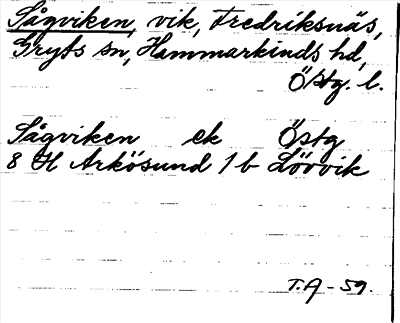 Sågviken, vik, Fredriksnäs,
Gryts sn, Hammarkinds hd,
Östg. l.
Sågviken ek Östg
8 H Arkösund 1 b Lövvik
T.A - 59.